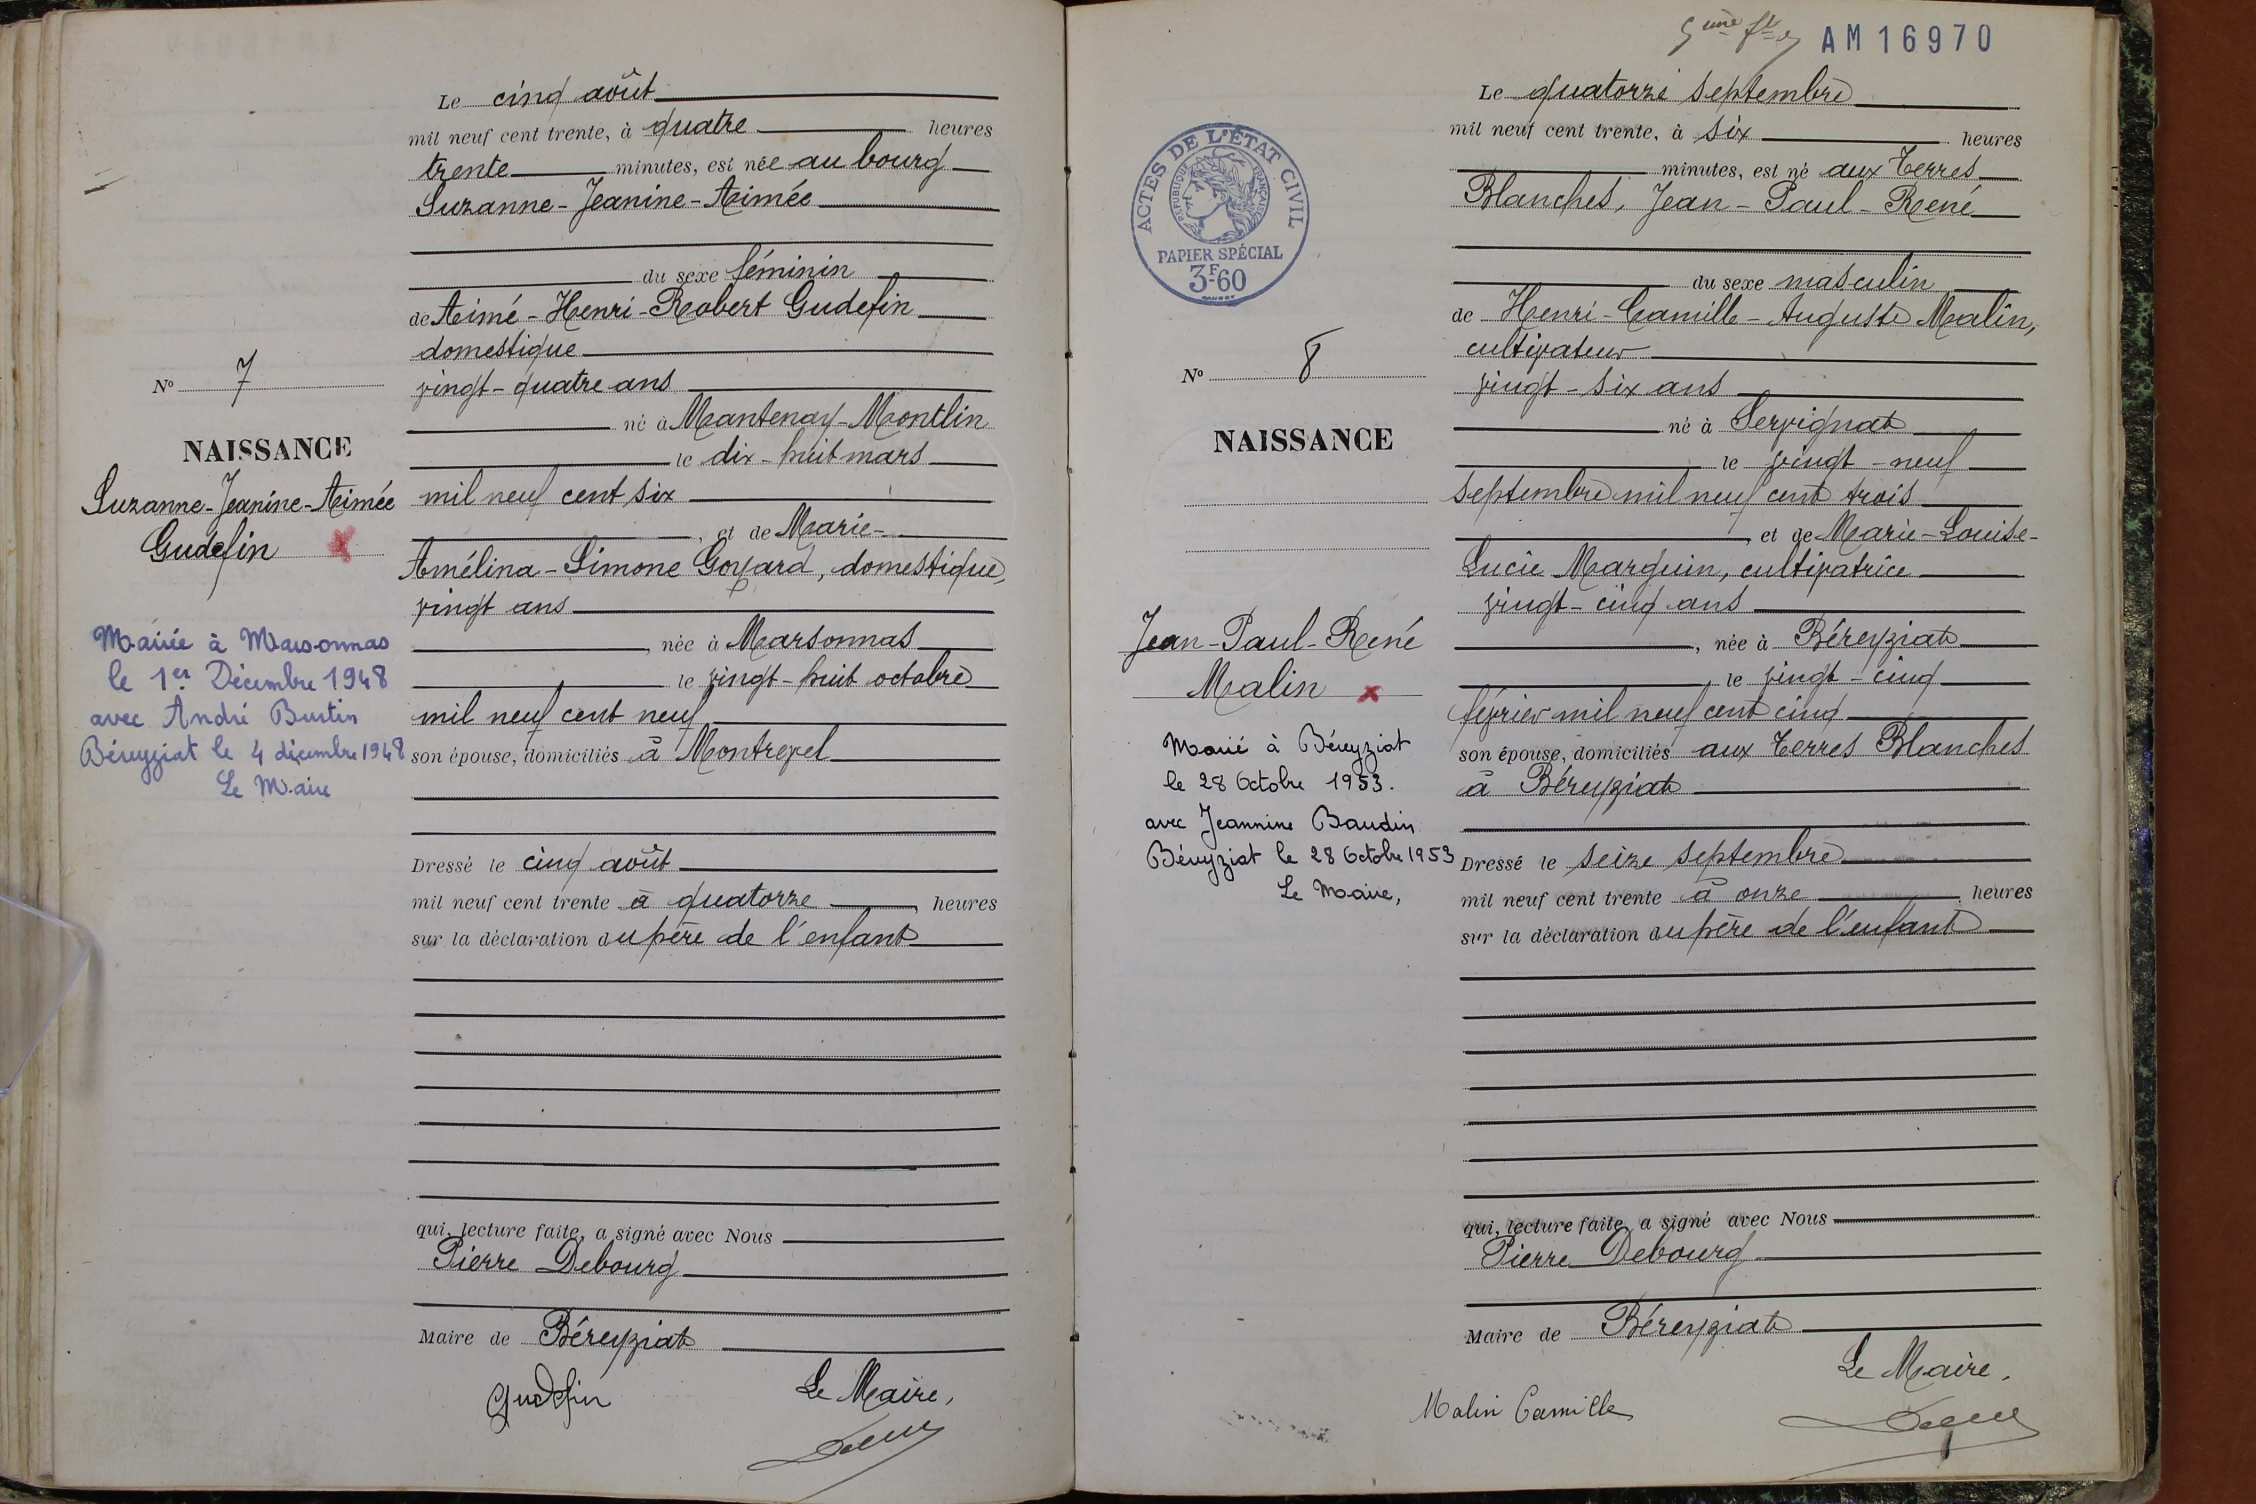 Le cinq août
mil neuf cent trente, à quatre heures
trente minutes, est née au bourg
Suzanne-Jeanine-Aimée
du sexe féminin
de Aimé-Henri-Robert Gudefin
domestique
vingt-quatre ans
né à Mantenay-Montlin
le dix-huit mars
mil neuf cent six
, et de Marie-
Amélina-Simone Goyard, domestique,
vingt ans
, née à Marsonnas
le vingt-huit octobre
mil neuf cent neuf
son épouse, domiciliés à Montrevel
Dressé le cinq août
mil neuf cent trente à quatorze heures
sur la déclaration du père de l'enfant
qui, lecture faite, a signé avec Nous
Pierre Debourg
Maire de Béreyziat
Gudefin
Le Maire,
No 7
NAISSANCE
Suzanne-Jeanine-Aimée
Gudefin
Mariée à Marsonnas
le 1er Décembre 1948
avec André Burtin
Béreyziat le 4 décembre 1948
Le Maire
AM16970
Le quatorze septembre
mil neuf cent trente, à six heures
minutes, est né aux Terres
Blanches, Jean-Paul-René
du sexe masculin
de Henri-Camille-Auguste Malin,
cultivateur
vingt-six ans
né à Servignat
le vingt-neuf
septembre mil neuf cent trois
, et de Marie-Louise-
Lucie Marguin, cultivatrice
vingt-cinq ans
, née à Béreyziat
, le vingt-cinq
février mil neuf cent cinq
son épouse, domiciliés aux Terres Blanches
à Béreyziat
Dressé le seize septembre
mil neuf cent trente à onze heures
sur la déclaration du père de l'enfant
qui, lecture faite, a signé avec Nous
Pierre Debourg
Maire de Béreyziat
Le Maire,
Malin Camille
ACTES DE L'ÉTAT CIVIL
RÉPUBLIQUE FRANÇAISE
PAPIER SPÉCIAL
3F60
No 8
NAISSANCE
Jean-Paul-René
Malin
Marié à Béreyziat
le 28 Octobre 1953.
avec Jeannine Baudin
Béreyziat le 28 Octobre 1953
Le Maire,